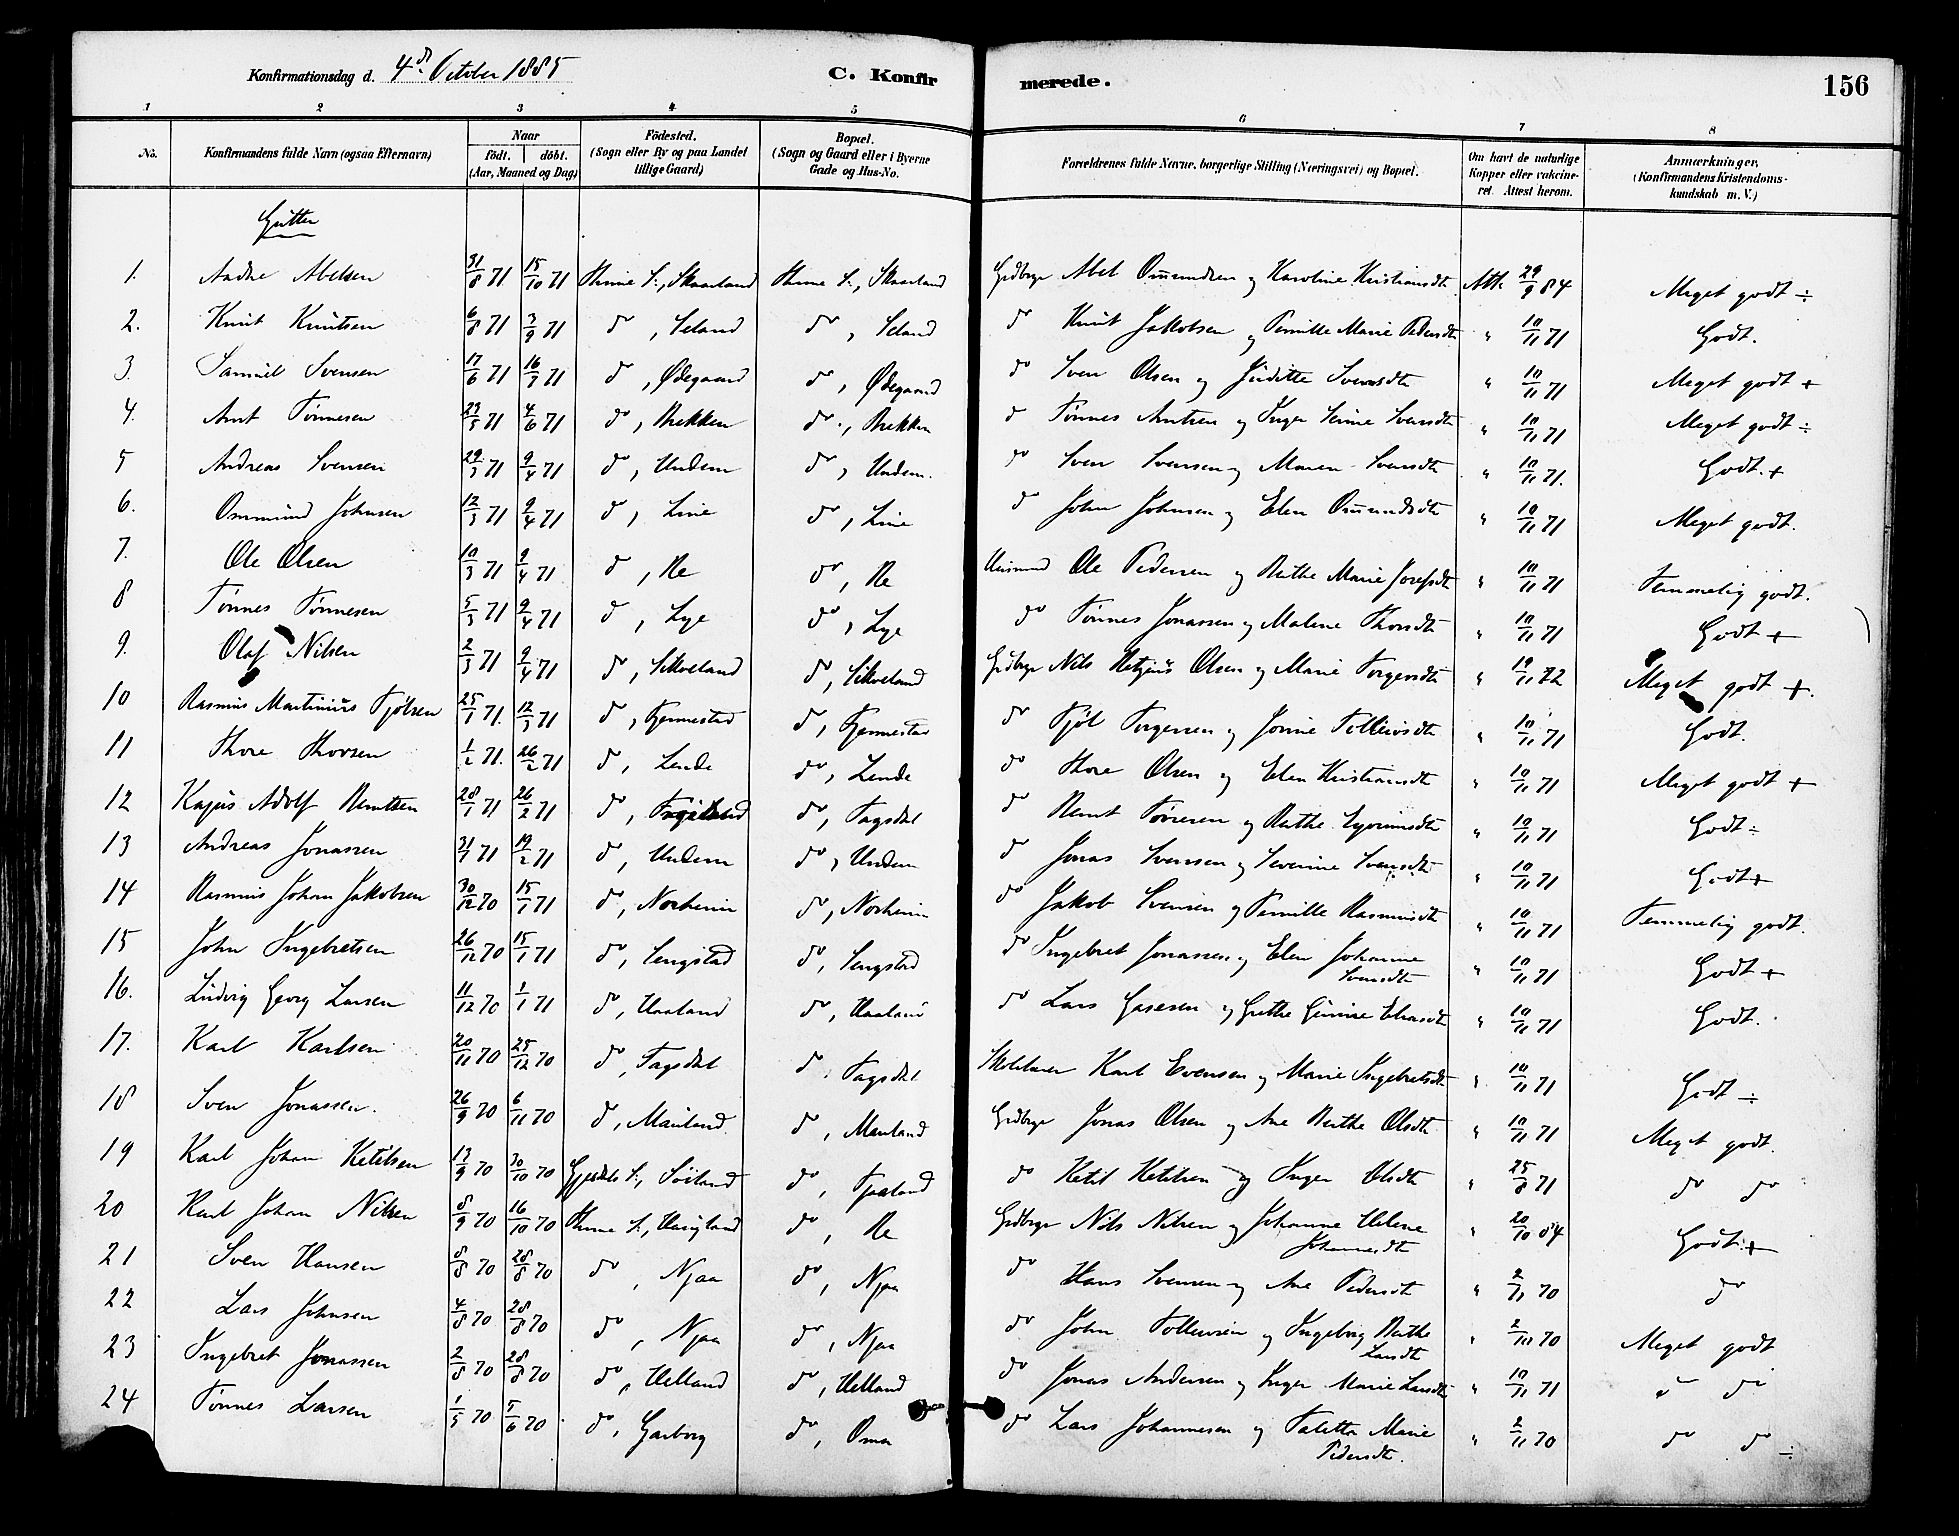 Konfirmationsdag d. 4de October 1885
C. Konfirmerede.
156
1 2 3 4 5 6 7 8
No. Konfirmandens fulde Navn (ogsaa Efternavn) Naar født. døbt. (Aar, Maaned og Dag) Födested. (Sogn eller By og paa Landet tillige Gaard) Bopæl. (Sogn og Gaard eller i Byerne Gade og Hus-No. Forældrenes fulde Navne, borgerlige Stilling (Næringsvei) og Bopæl. Om havt de naturlige Kopper eller vakcineret. Attest herom. Anmærkninger. (Konfirmandens Kristendomskundskab m. V.)
Gutter
1. Andre Abelsen 31/8 71 15/10 71 Thime S., Skaarland Thime S., Skaarland Grdbrgr Abel Omundsen og Karoline Kristiansdtr Att. 29/9 84 Meget godt ÷
2. Knut Knutsen 6/8 71 3/9 71 do, Seland do, Seland do Knut Jakobsen og Pernille Marie Pedersdtr " 10/11 71 Godt.
3. Samuel Svensen 17/6 71 16/7 71 do, Ødegaard do, Ødegaard do Sven Olsen og Juditte Svensdtr " 10/11 71 Meget godt +
4. Arnt Tønnesen 23/5 71 4/6 71 do, Brekken do, Brekken do Tønnes Arntsen og Inger Serine Svensdtr " 10/11 71 Meget godt ÷
5 Andreas Svensen 29/3 71 9/4 71 do, Undem do, Undem. do Sven Svensen og Maren Svensdtr " 10/11 71. Godt. +
6. Ommund Johnsen 12/3 71 9/4 71 do, Line do, Line do John Johnsen og Elen Omundsdtr " 10/11 71 Meget godt.
7. Ole Olsen 10/3 71 9/4 71 do, Re do, Re Husmand Ole Pedersen og Berthe Marie Josefsdtr " 10/11 71 Temmelig godt.
8 Tønnes Tønnesen 5/3 71 9/4 71 do, Lye do, Lye do Tønnes Jonassen og Malene Thorsdtr " 10/11 71 Godt +
9. Olaf Nilsen 2/3 71 9/4 71 do, Sikveland do, Sikveland Grdbrgr Nils Olsen og Marie Torgersdtr " 19/11 72 Meget godt +.
10 Rasmus Martinius Tjølsen 25/1 71. 12/3 71 do, Tjennestad do, Tjennestad do Tjøl Torgersen og Jonne Tolleivsdtr " 10/11 71 Godt.
11 Thore Thorsen 1/2 71. 26/2 71 do, Lende do, Lende do Thore Olsen og Elen Kristiansdtr " 10/11 71 Meget godt +
12 Kajus Adolf Berntsen 28/1 71 26/2 71 do, do, Fagsdal do Bernt Tørresen og Berthe Gjorinsdtr " 10/11 71 Godt ÷
13 Andreas Jonassen 31/1 71 19/2 71 do, Undem do, Undem do Jonas Svensen og Severine Svensdtr " 10/11 71 Godt +
14 Rasmus Johan Jakobsen 30/12 70 15/1 71 do, Norheim do, Norheim do Jakob Svensen og Pernille Rasmusdtr " 10/11 71 Temmelig godt.
15 John Ingebretsen 26/12 70 15/1 71 do, Lengstad do, Lengstad do Ingebret Jonassen og Elen Johanne Svensdtr " 10/11 71 Godt +
16. Ludvig Georg Larsen 11/12 70 1/1 71 do, Haaland do, Haaland do Lars Gasesen og Grethe Gunine Eliasdtr " 10/11 71 Godt.
17. Karl Karlsen 20/11 70 25/12 70 do, Fagsdal do, Fagsdal Skolelærer Karl Evensen og Marie Ingebretsdtr " 10/11 71 Godt ÷
18 Sven Jonassen. 26/9 70 6/11 70 do, Mauland do, Mauland Grdbrgr Jonas Olsen og Ane Berthe Olsdtr " 10/11 71 Meget godt.
19 Karl Johan Ketilsen 13/9 70 30/10 70 Gjesdal S., Söiland do, Tjaaland do Ketil Ketilsen og Inger Olsdtr " 25/8 71 do do
20 Karl Johan Nilsen 8/9 70 16/10 70 Thime S., Haugland do, Re Grdbrgr Nils Nilsen og Johanne Helene Johannesdtr " 20/10 84 Godt. +
21 Sven Hansen 8/8 70 28/8 70 do, Njaa do, Njaa do Hans Svensen og Ane Pedersdtr " 2/11 70 do
22 Lars Johnsen 4/8 70 28/8 70 do, Njaa do, Njaa do John Tolleivsen og Ingeborg Berthe Larsdtr " 2/11 70 Meget godt
23 Ingebret Jonassen 2/8 70 28/8 70 do, Helland do, Helland do Jonas Andersen og Inger Marie Larsdtr " 10/11 71 do do
24 Tønnes Larsen 1/5 70 5/6 70 do, Garborg do, Oma do Lars Johannesen og Taletta Marie Pedersdtr. " 2/11 70 do do ÷